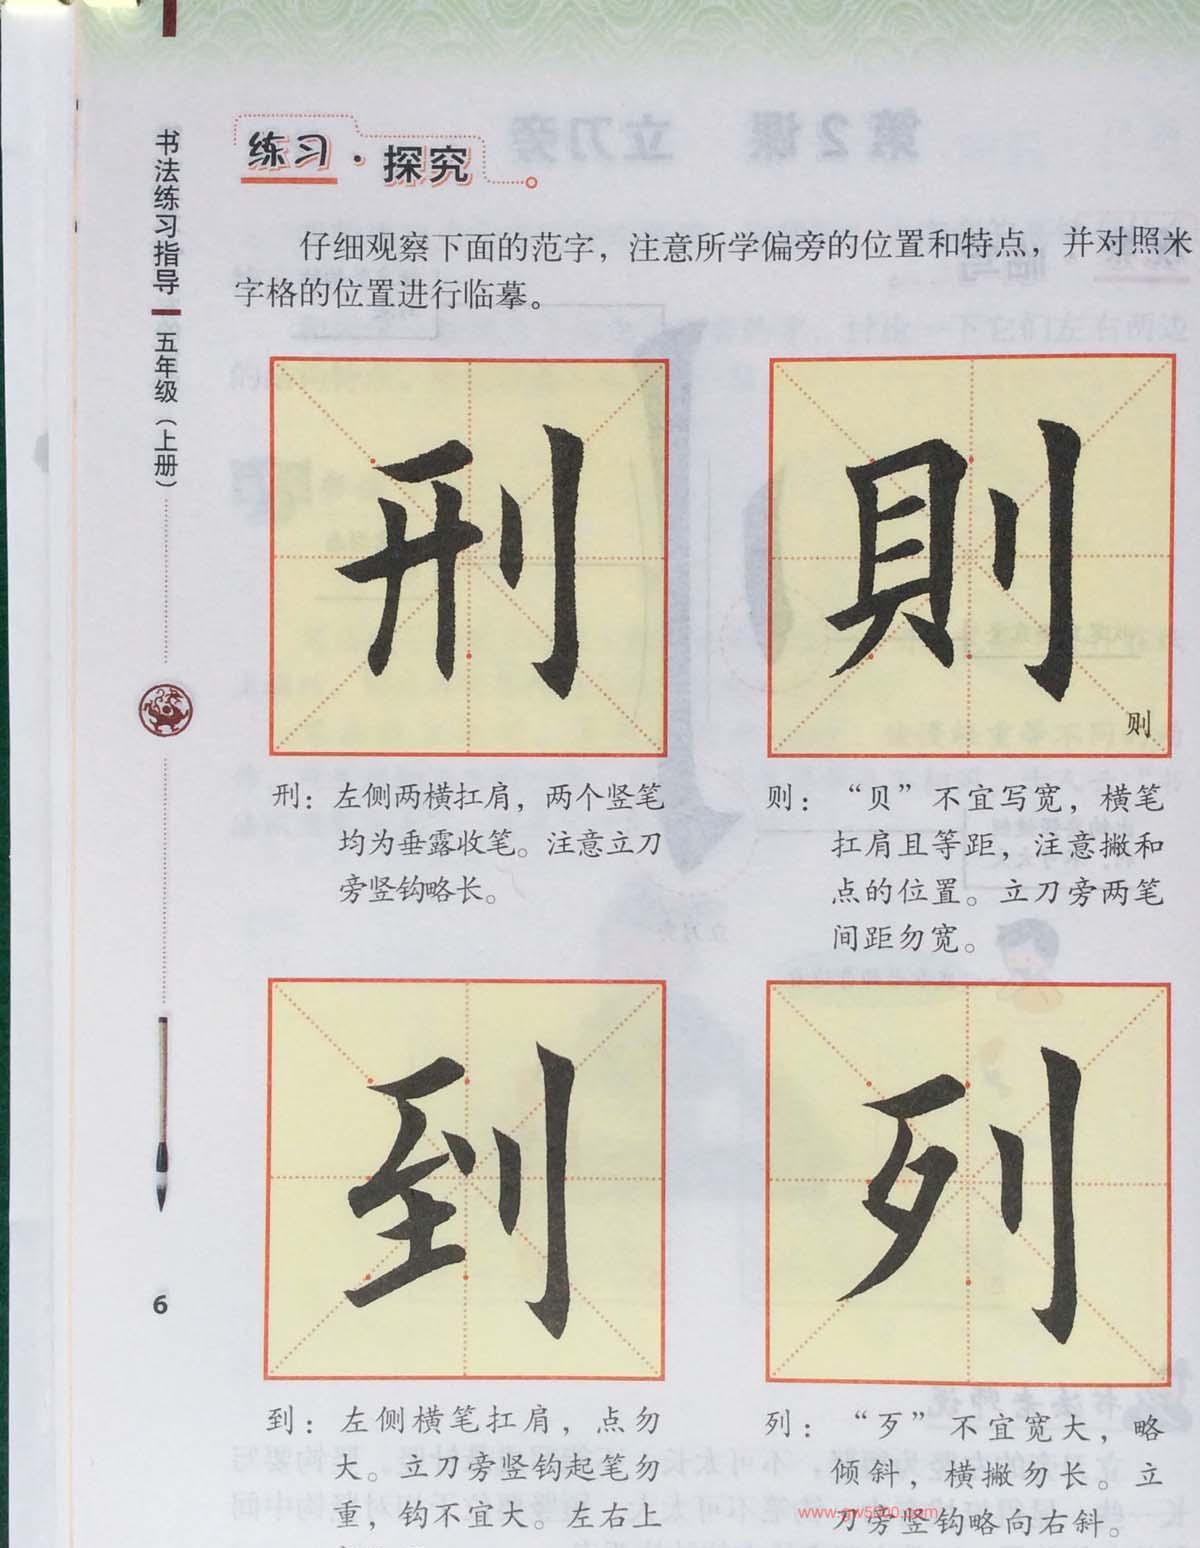 书法练习指导
五年级（上册）
6
练习·探究
仔细观察下面的范字，注意所学偏旁的位置和特点，并对照米
字格的位置进行临摹。
刑
則
则
刑：左侧两横扛肩，两个竖笔
均为垂露收笔。注意立刀
旁竖钩略长。
则：“贝”不宜写宽，横笔
扛肩且等距，注意撇和
点的位置。立刀旁两笔
间距勿宽。
到
列
到：左侧横笔扛肩，点勿
大。立刀旁竖钩起笔勿
重，钩不宜大。左右上
列：“歹”不宜宽大，略
倾斜，横撇勿长。立
刀旁竖钩略向右斜。
www.gw5500.com